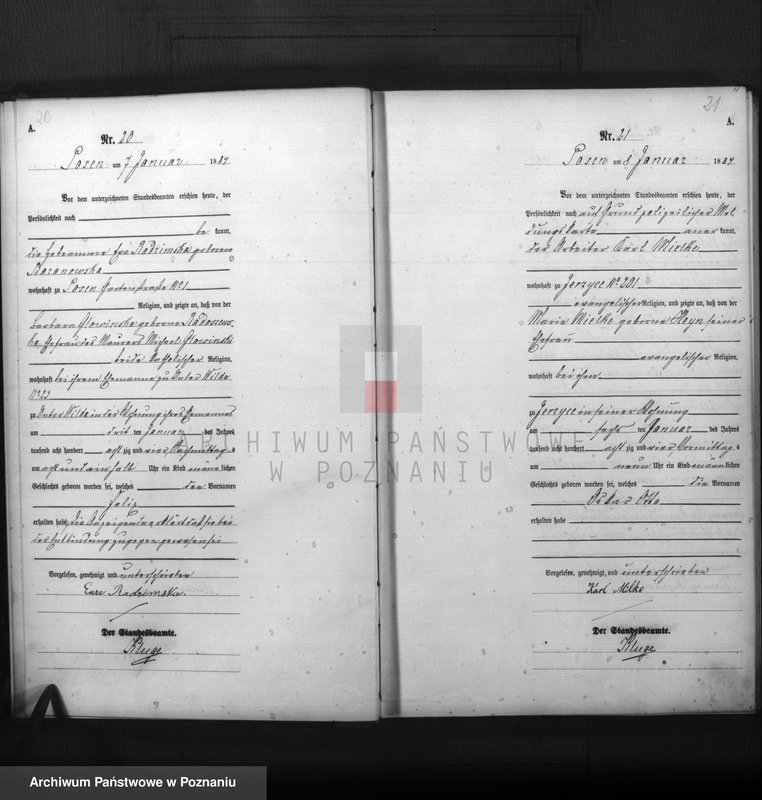 20
A.
Nr. 20
Posen am 7 Januar 1884
Vor dem unterzeichneten Standesbeamten erschien heute, der
Persönlichkeit nach
be kannt,
die Hebeamme Eva Radzimska geborene
Baranowska
wohnhaft zu Posen Gartenstraße No 1
Religion, und zeigte an, daß von der
Barbara Glowinska geborene Radoszews
ka, Ehefrau des Maurers Michael Glowinski
beide katholischer Religion,
wohnhaft bei ihrem Ehemanne zu Unter Wilda
No 22
zu Unter Wilda in der Wohnung ihres Ehemannes
am drit ten Januar des Jahres
tausend acht hundert acht zig und vier Nachmittag s
um acht und ein halb Uhr ein Kind männ lichen
Geschlechts geboren worden sei, welches den Vornamen
Felix
erhalten habe. Die Anzeigende erklärt daß sie bei
der Entbindung zugegen gewesen sei
Vorgelesen, genehmigt und unterschrieben
Ewa Radzimska.
Der Standesbeamte.
Kluge
21
A.
Nr. 21
Posen am 8 Januar 1884
Vor dem unterzeichneten Standesbeamten erschien heute, der
Persönlichkeit nach auf Grund polizeilicher Mel
dungskarte aner kannt,
der Arbeiter Karl Mielke
wohnhaft zu Jerzyce No 201
evangelischer Religion, und zeigte an, daß von der
Marie Mielke geborene Heyn seiner
Ehefrau
evangelischer Religion,
wohnhaft bei ihm
zu Jerzyce in seiner Wohnung
am sechs ten Januar des Jahres
tausend acht hundert acht zig und vier Vormittag s
um neun Uhr ein Kind männ lichen
Geschlechts geboren worden sei, welches die Vornamen
Oskar Otto
erhalten habe
Vorgelesen, genehmigt, und unterschrieben
Karl Milke
Der Standesbeamte.
Kluge
ARCHIWUM PAŃSTWOWE
W POZNANIU
Archiwum Państwowe w Poznaniu